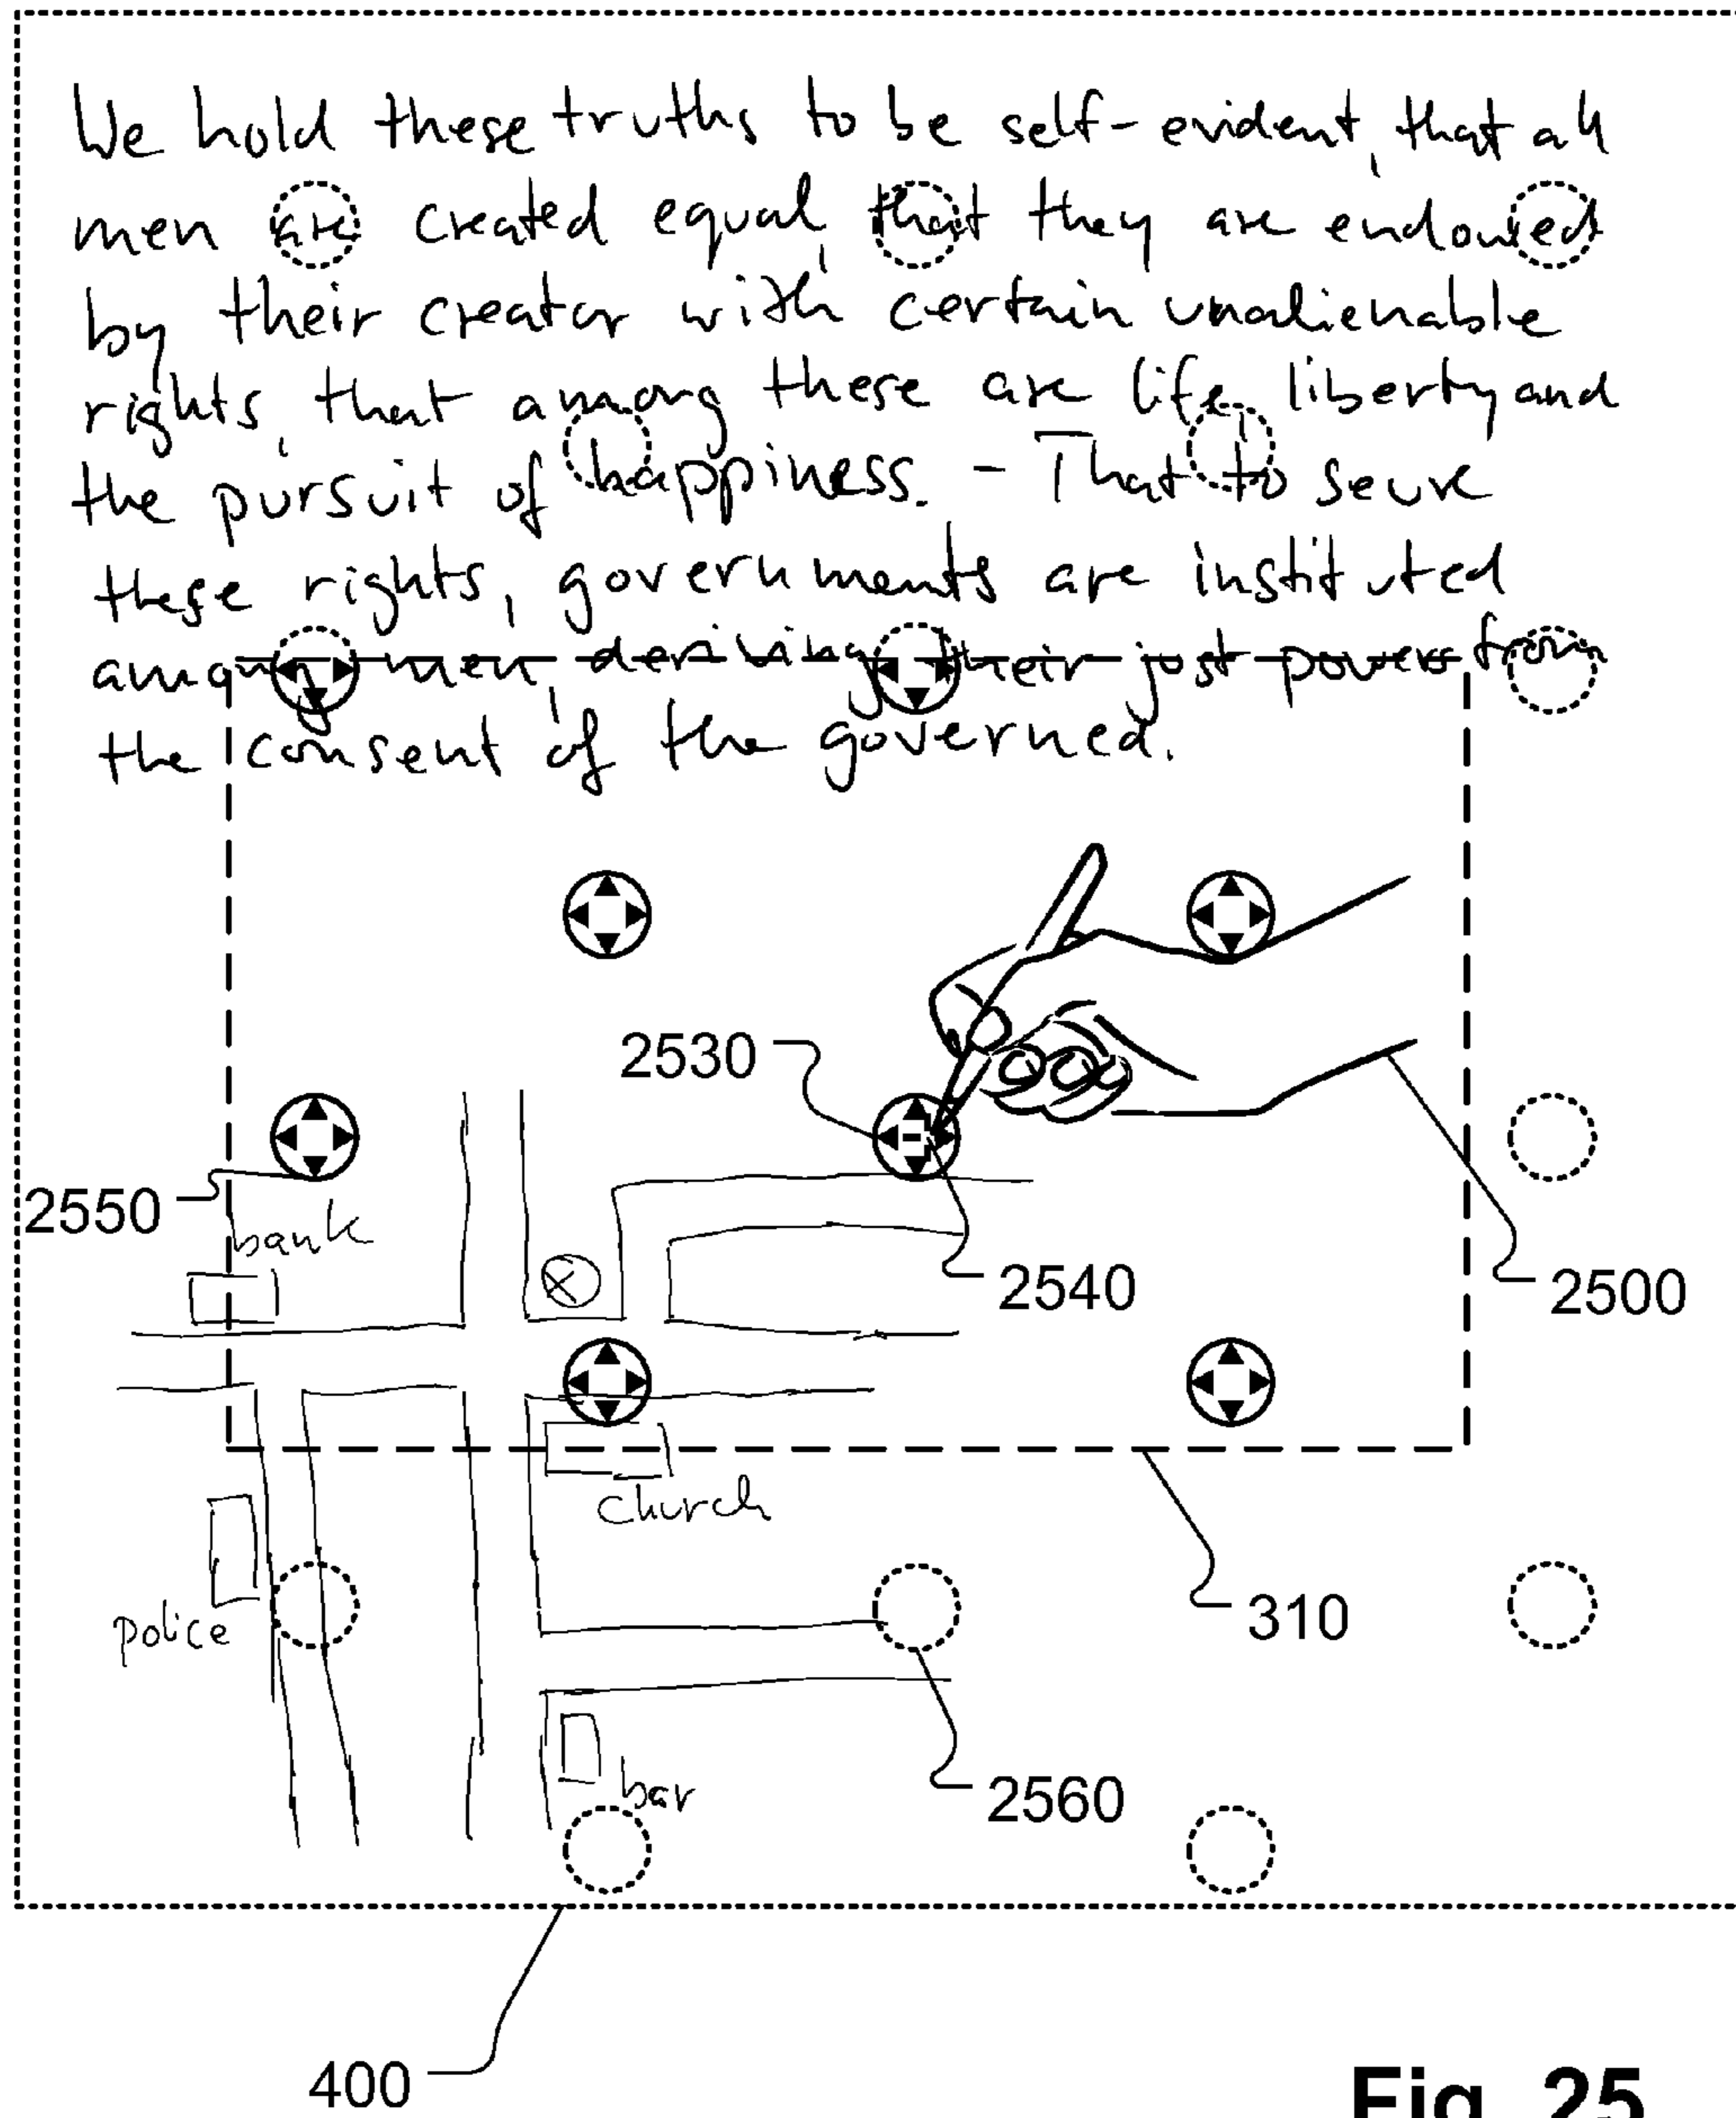 We hold these truths to be self-evident, that all
men are created equal, that they are endowed
by their creator with certain unalienable
rights, that among these are life, liberty and
the pursuit of happiness. - That to secure
these rights, governments are instituted
among men, deriving their just powers from
the consent of the governed.
2530
2550
bank
2540
2500
church
police
310
bar
2560
400
Fig. 25